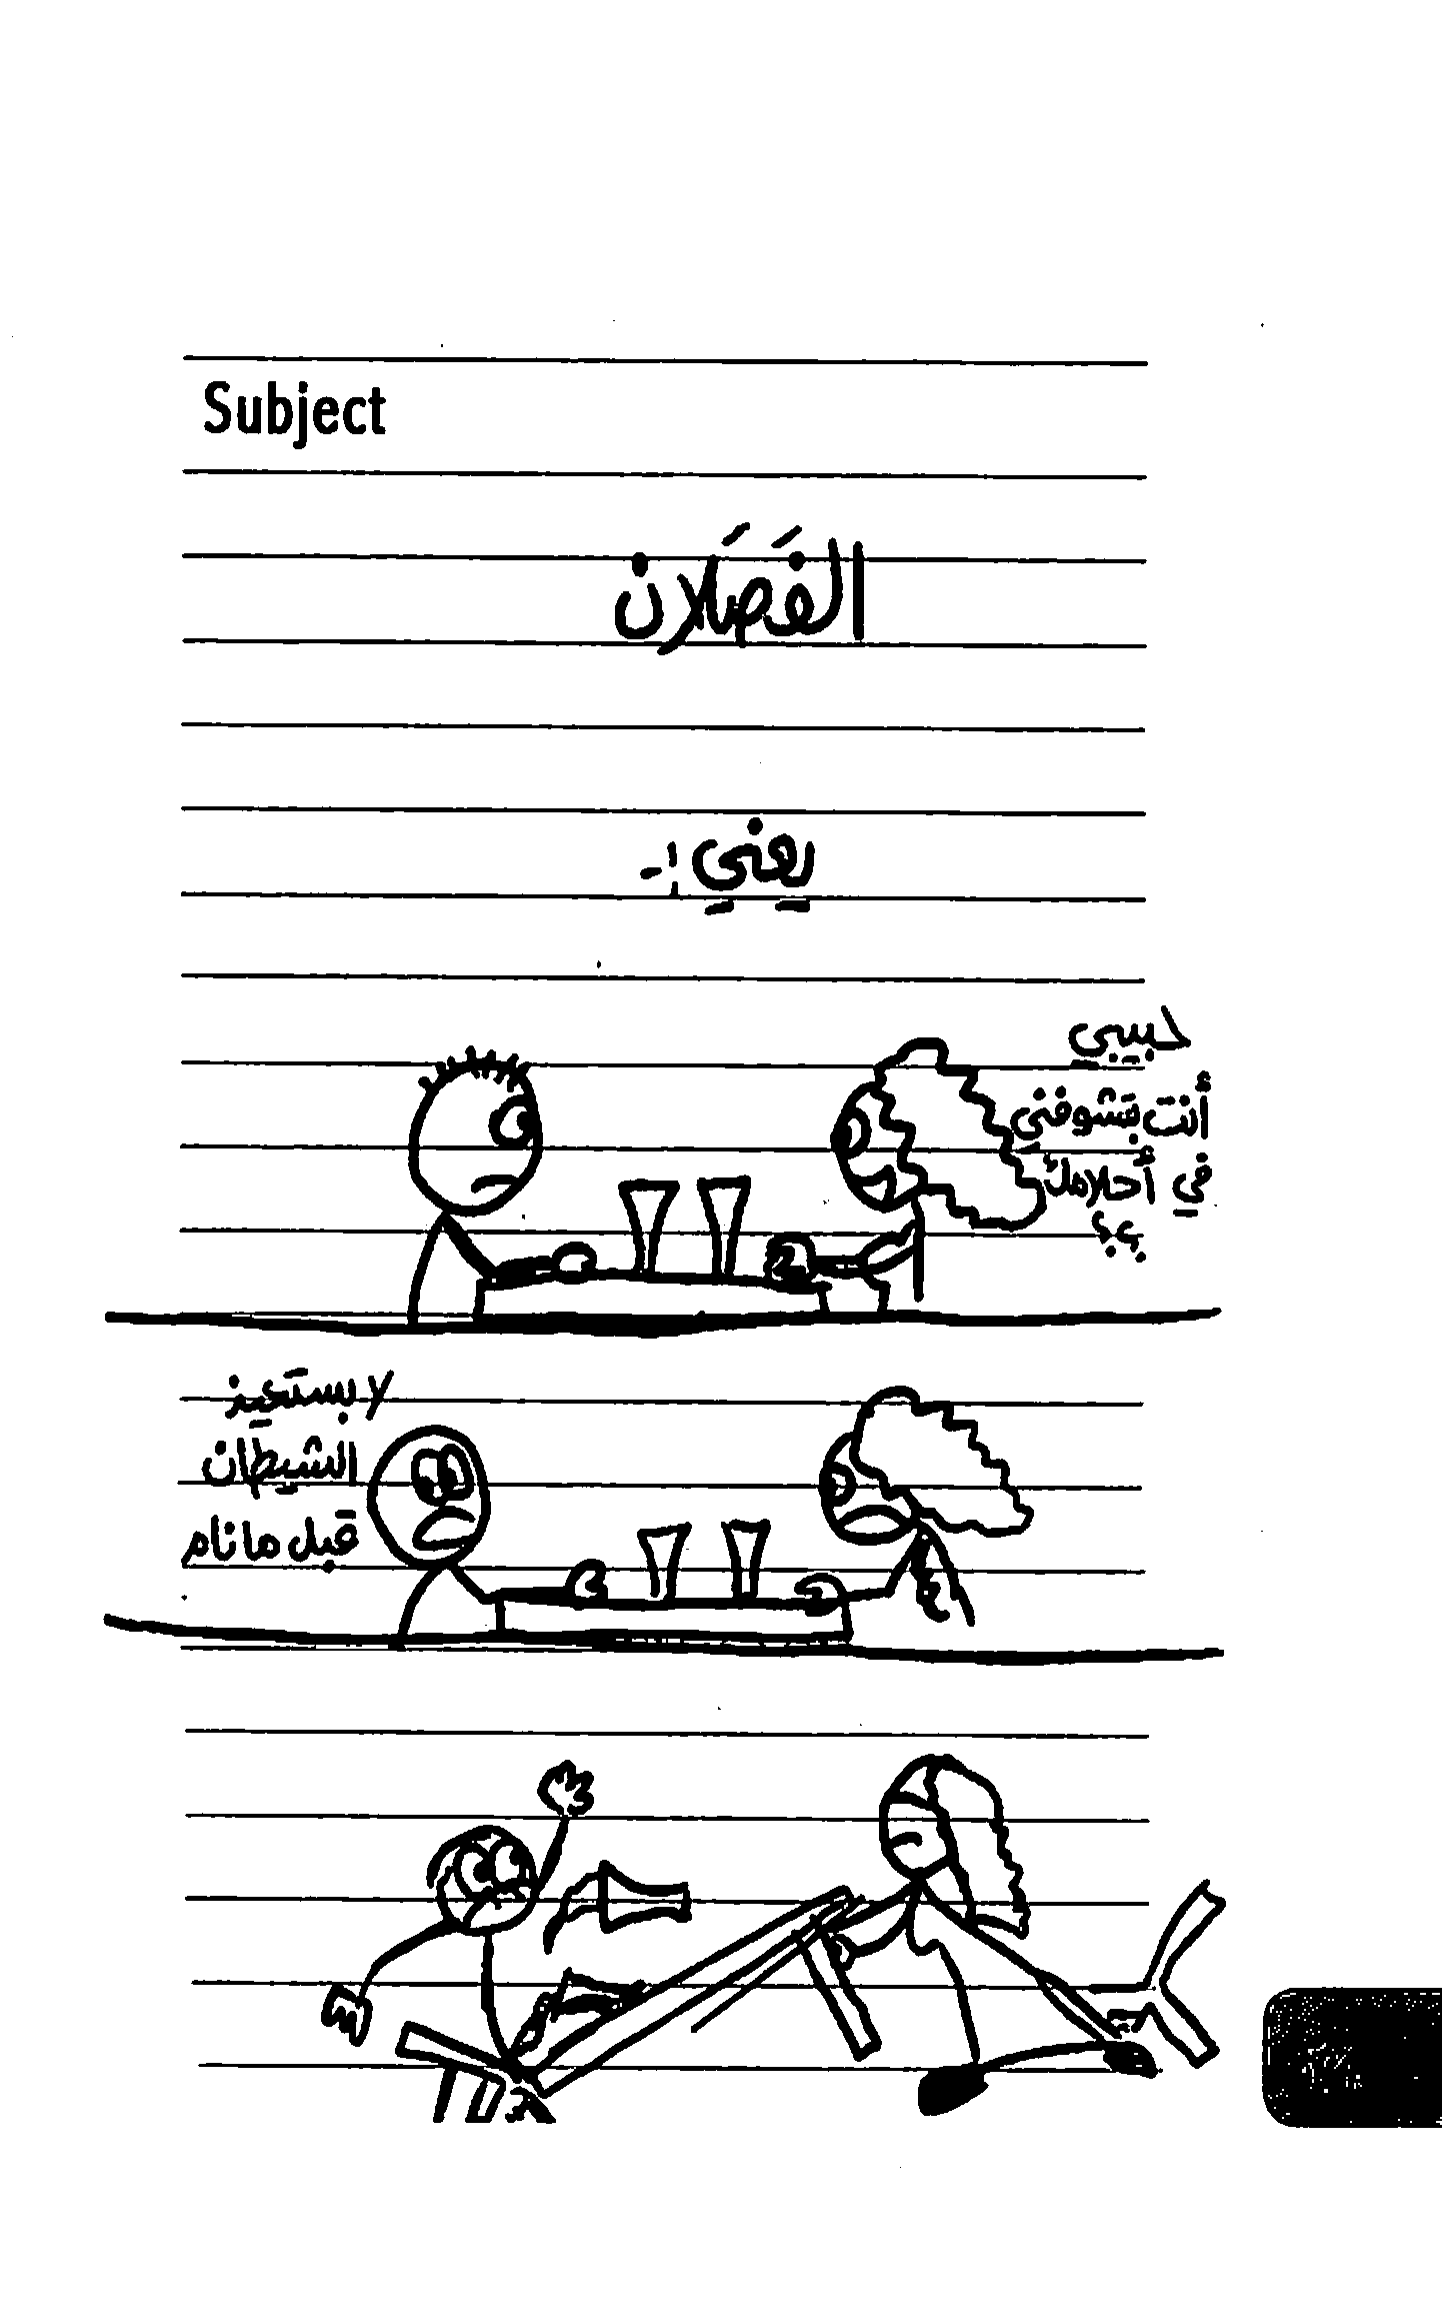 Subject
الفَصَلان
يعني :-
حبيبي
أنت تشوفني
في أحلامك
؟؟
لا بستعيذ
الشيطان
قبل ما نام